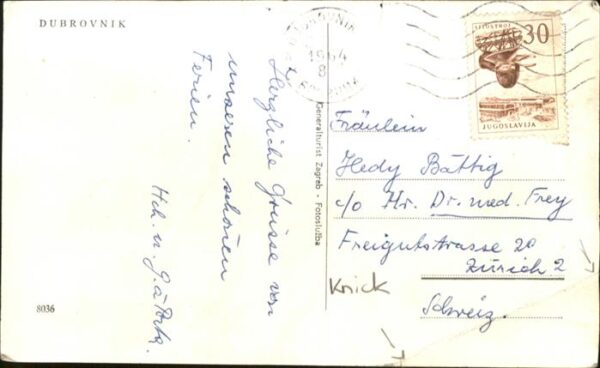 DUBROVNIK
Herzliche Grüsse von
unseren schönen
Ferien.
Hch. u. G. à Porta.
8036
Generalturist Zagreb - Fotoslužba
DUBROVNIK
1964
30
JUGOSLAVIJA
Fräulein
Hedy Bättig
c/o Hr. Dr. med. Frey
Freigutstrasse 20
Zürich 2
Schweiz.
Knick